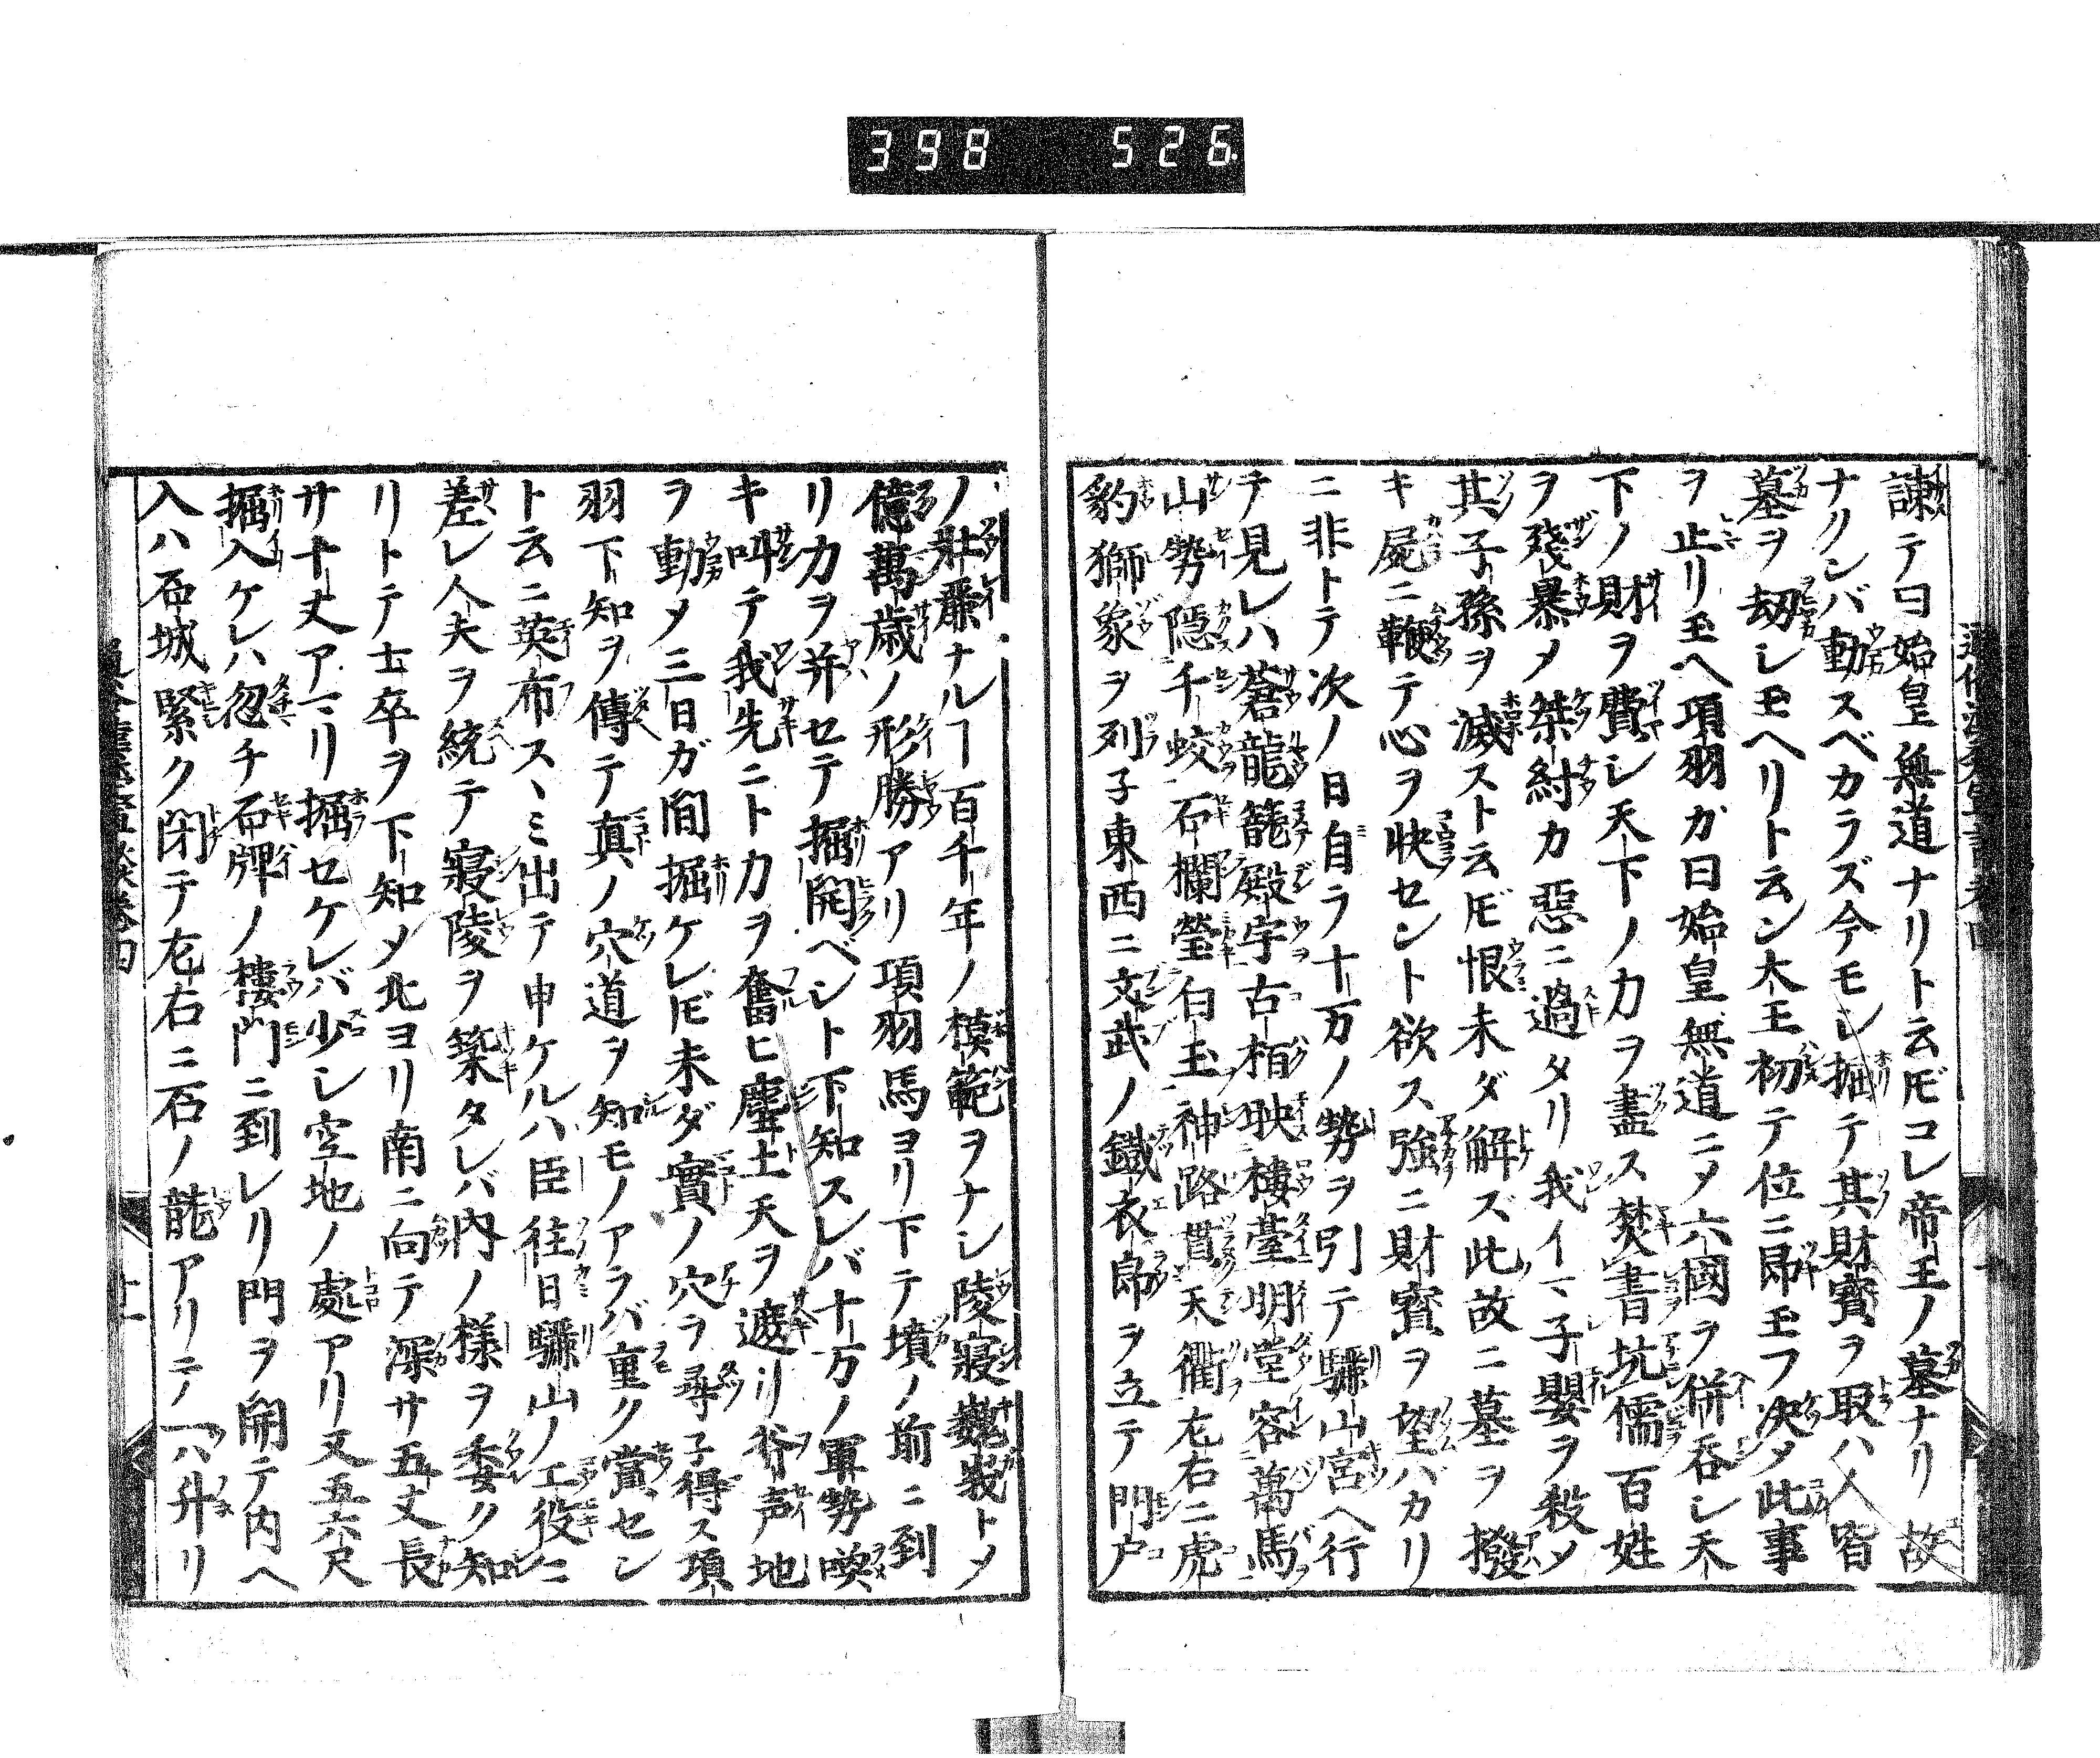 398 526
諌テ曰始皇無道ナリト云𪜈コレ帝王ノ墓ナリ故
ナクンバ動スベカラズ今モシ掘テ其財寳ヲ取ハ人皆
墓ヲ刼シ玉ヘリト云ン大王初テ位ニ即玉フ次タ此事
ヲ止リ玉ヘ項羽ガ曰始皇無道ニメ六國ヲ併呑シ天
下ノ財ヲ費シ天下ノ力ヲ盡ス焚書坑儒百姓
ヲ殘暴メ桀紂カ惡ニ過タリ我イマ子嬰ヲ殺メ
其子孫ヲ滅スト云𪜈恨未ダ解ズ此故ニ墓ヲ撥
キ屍ニ鞭テ心ヲ快セント欲ス強ニ財寳ヲ望バカリ
ニ非トテ次ノ日自ラ十万ノ勢ヲ引テ驪山宮ヘ行
テ見レハ蒼龍籠殿宇古栢映樓臺明堂容萬馬
山勢隠千蛟石欄瑩白玉神路貫天衢左右ニ虎
豹獅象ヲ列子東西ニ文武ノ鐵衣郎ヲ立テ門戸
ノ壯麗ナルヿ百千年ノ模範ヲナシ陵寢巍峩トメ
億萬歳ノ形勝アリ項羽馬ヨリ下テ墳ノ前ニ到
リカヲ并セテ掘開ベシト下知スレバ十万ノ軍勢喚
キ叫テ我先ニトカヲ奮ヒ塵土天ヲ遮リ斧声地
ヲ動メ三日ガ間掘ケレ𪜈未ダ實ノ穴ヲ尋子得ス項
羽下知ヲ傳テ真ノ穴道ヲ知モノアラバ重ク賞セン
ト云ニ英布スヽミ出テ申ケルハ臣往日驪山ノ工役ニ
差レ人夫ヲ統テ寢陵ヲ築タレバ内ノ様ヲ委ク知
リトテ士卒ヲ下知メ北ヨリ南ニ向テ深サ五丈長
サ十丈アマリ掘セケレバ少シ空地ノ處アリ又五六尺
掘入ケレハ忽チ石碑ノ樓門ニ到レリ門ヲ開テ内ヘ
入ハ石城緊ク閉テ左右ニ石ノ龍アリテ一ハ升リ